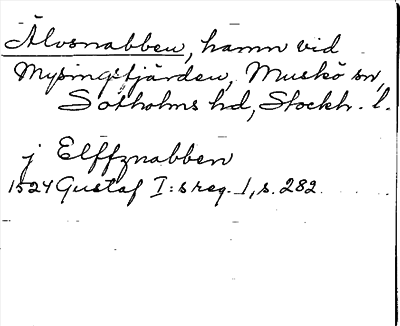 Älvsnabben, hamn vid
Mysingsfjärden, Muskö sn,
Sotholms hd, Stockh. l.
j Elffznabben
1524 Gustaf I:s reg. 1, s. 282.